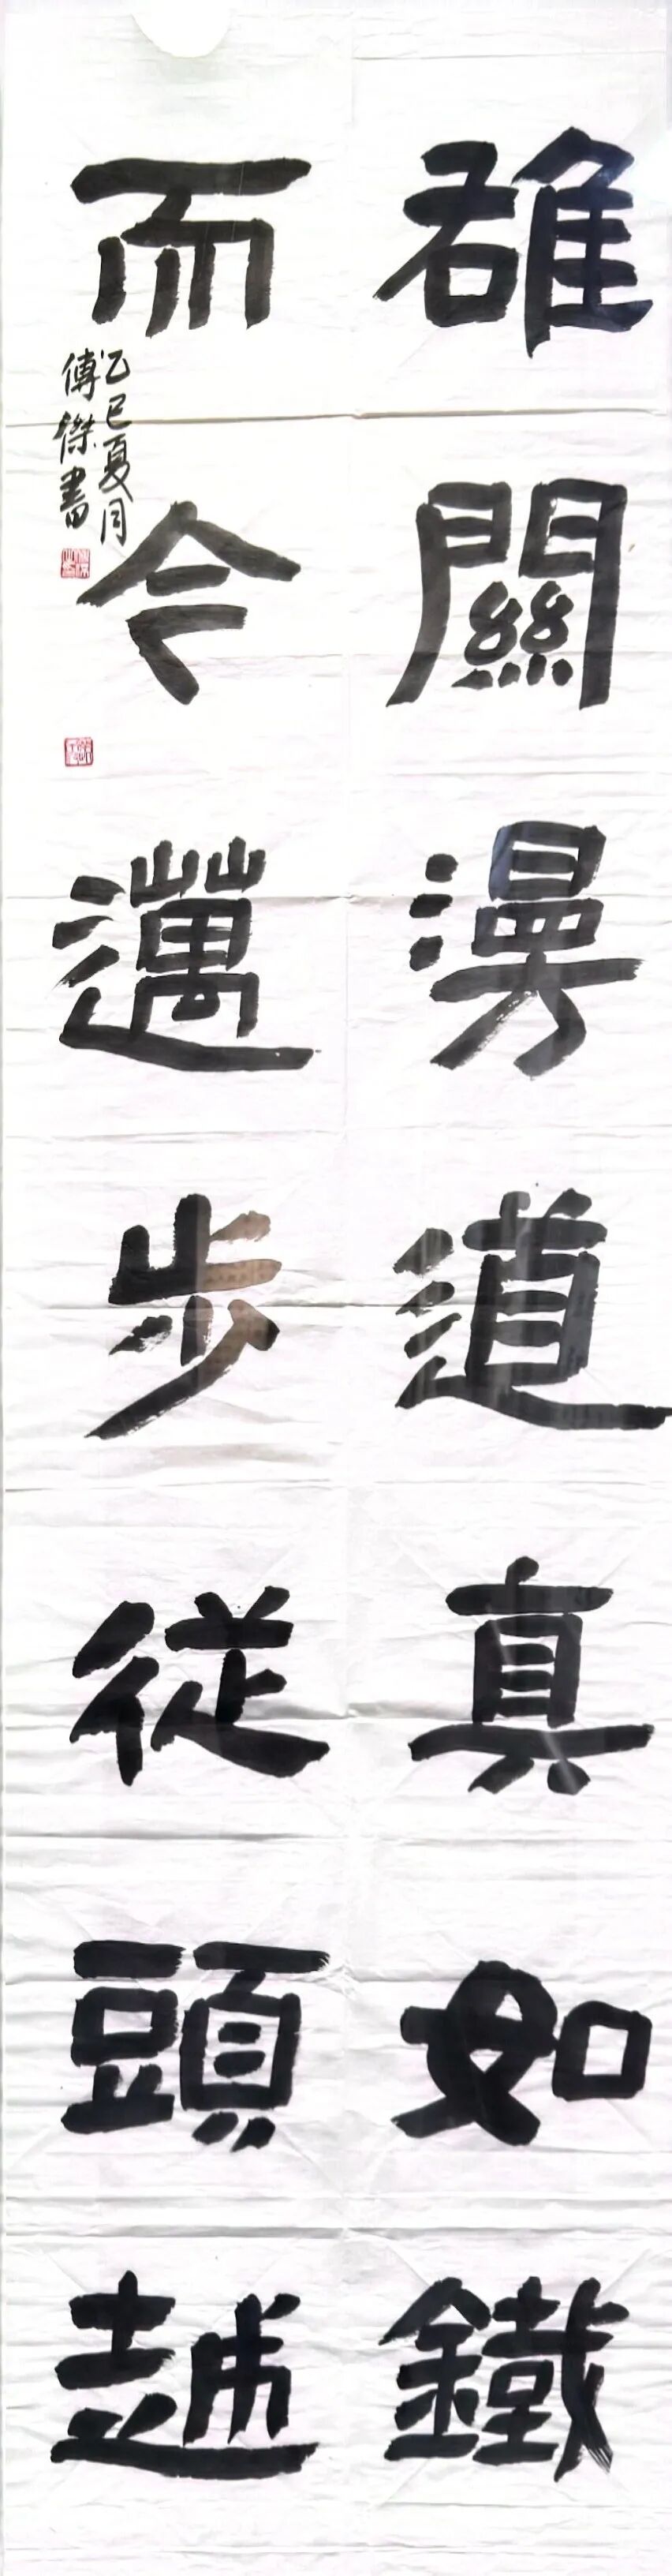 雄關漫道真如鐵
而今邁步從頭越
乙巳夏月
傅傑書